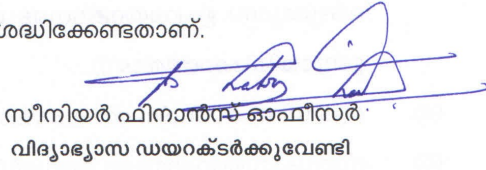 ശ്രദ്ധിക്കേണ്ടതാണ്.
സീനിയർ ഫിനാൻസ് ഓഫീസർ
വിദ്യാഭ്യാസ ഡയറക്ടർക്കുവേണ്ടി